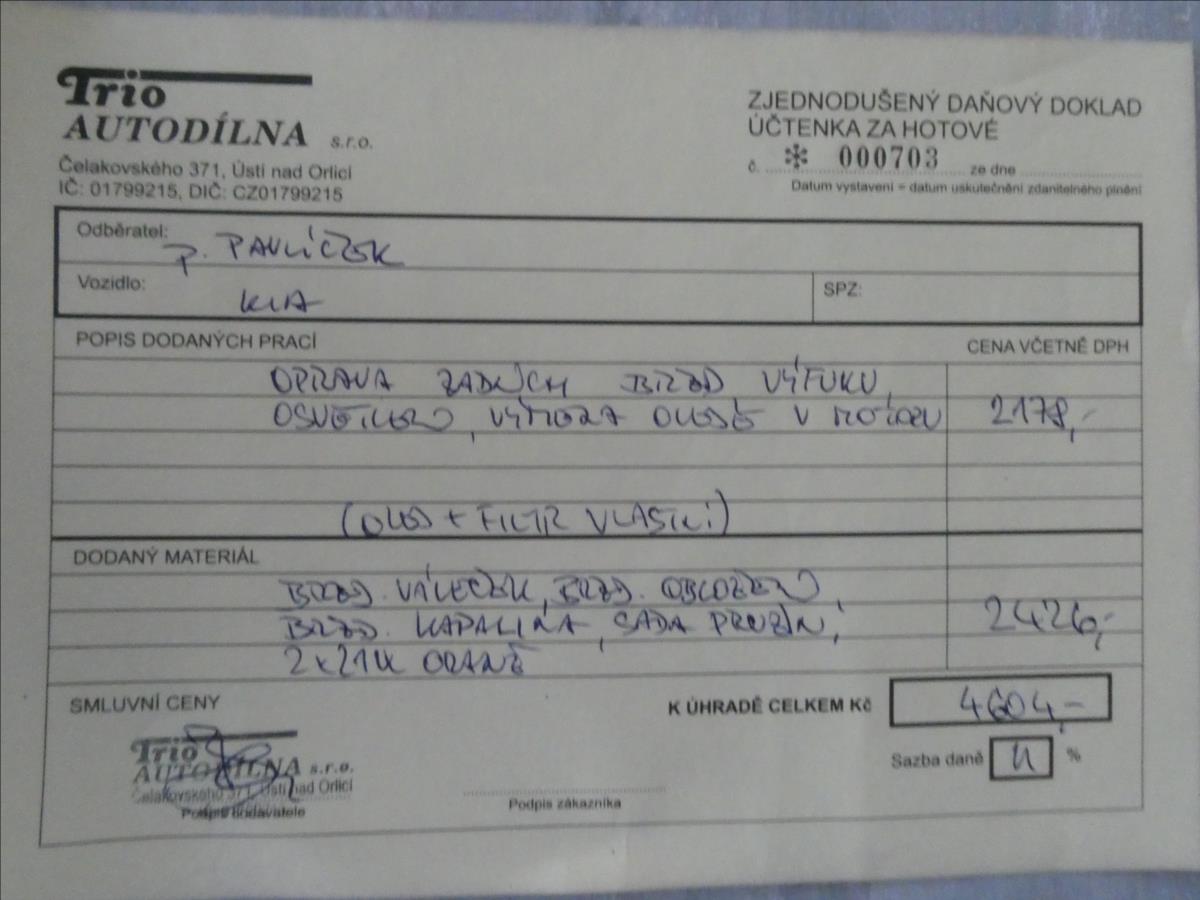 Trio
AUTODÍLNA s.r.o.
Čelakovského 371, Ústí nad Orlicí
IČ: 01799215, DIČ: CZ01799215
ZJEDNODUŠENÝ DAŇOVÝ DOKLAD
ÚČTENKA ZA HOTOVÉ
č. * 000703 ze dne
Datum vystavení = datum uskutečnění zdanitelného plnění
Odběratel: P. PAVLÍČEK
Vozidlo: KIA SPZ:
POPIS DODANÝCH PRACÍ CENA VČETNĚ DPH
OPRAVA ZADNÍCH BRZD VÝFUKU,
OSVĚTLENÍ, VÝMĚNA OLEJE V MOTORU 2178,-
(OLEJ + FILTR VLASTNÍ)
DODANÝ MATERIÁL
BRZD. VÁLEČEK, BRZD. OBLOŽENÍ
BRZD. KAPALINA, SADA PRUŽIN, 2426,-
2x21W
SMLUVNÍ CENY K ÚHRADĚ CELKEM Kč 4604,-
Sazba daně %
Trio
AUTODÍLNA s.r.o.
Čelakovského 371, Ústí nad Orlicí
Podpis dodavatele
Podpis zákazníka